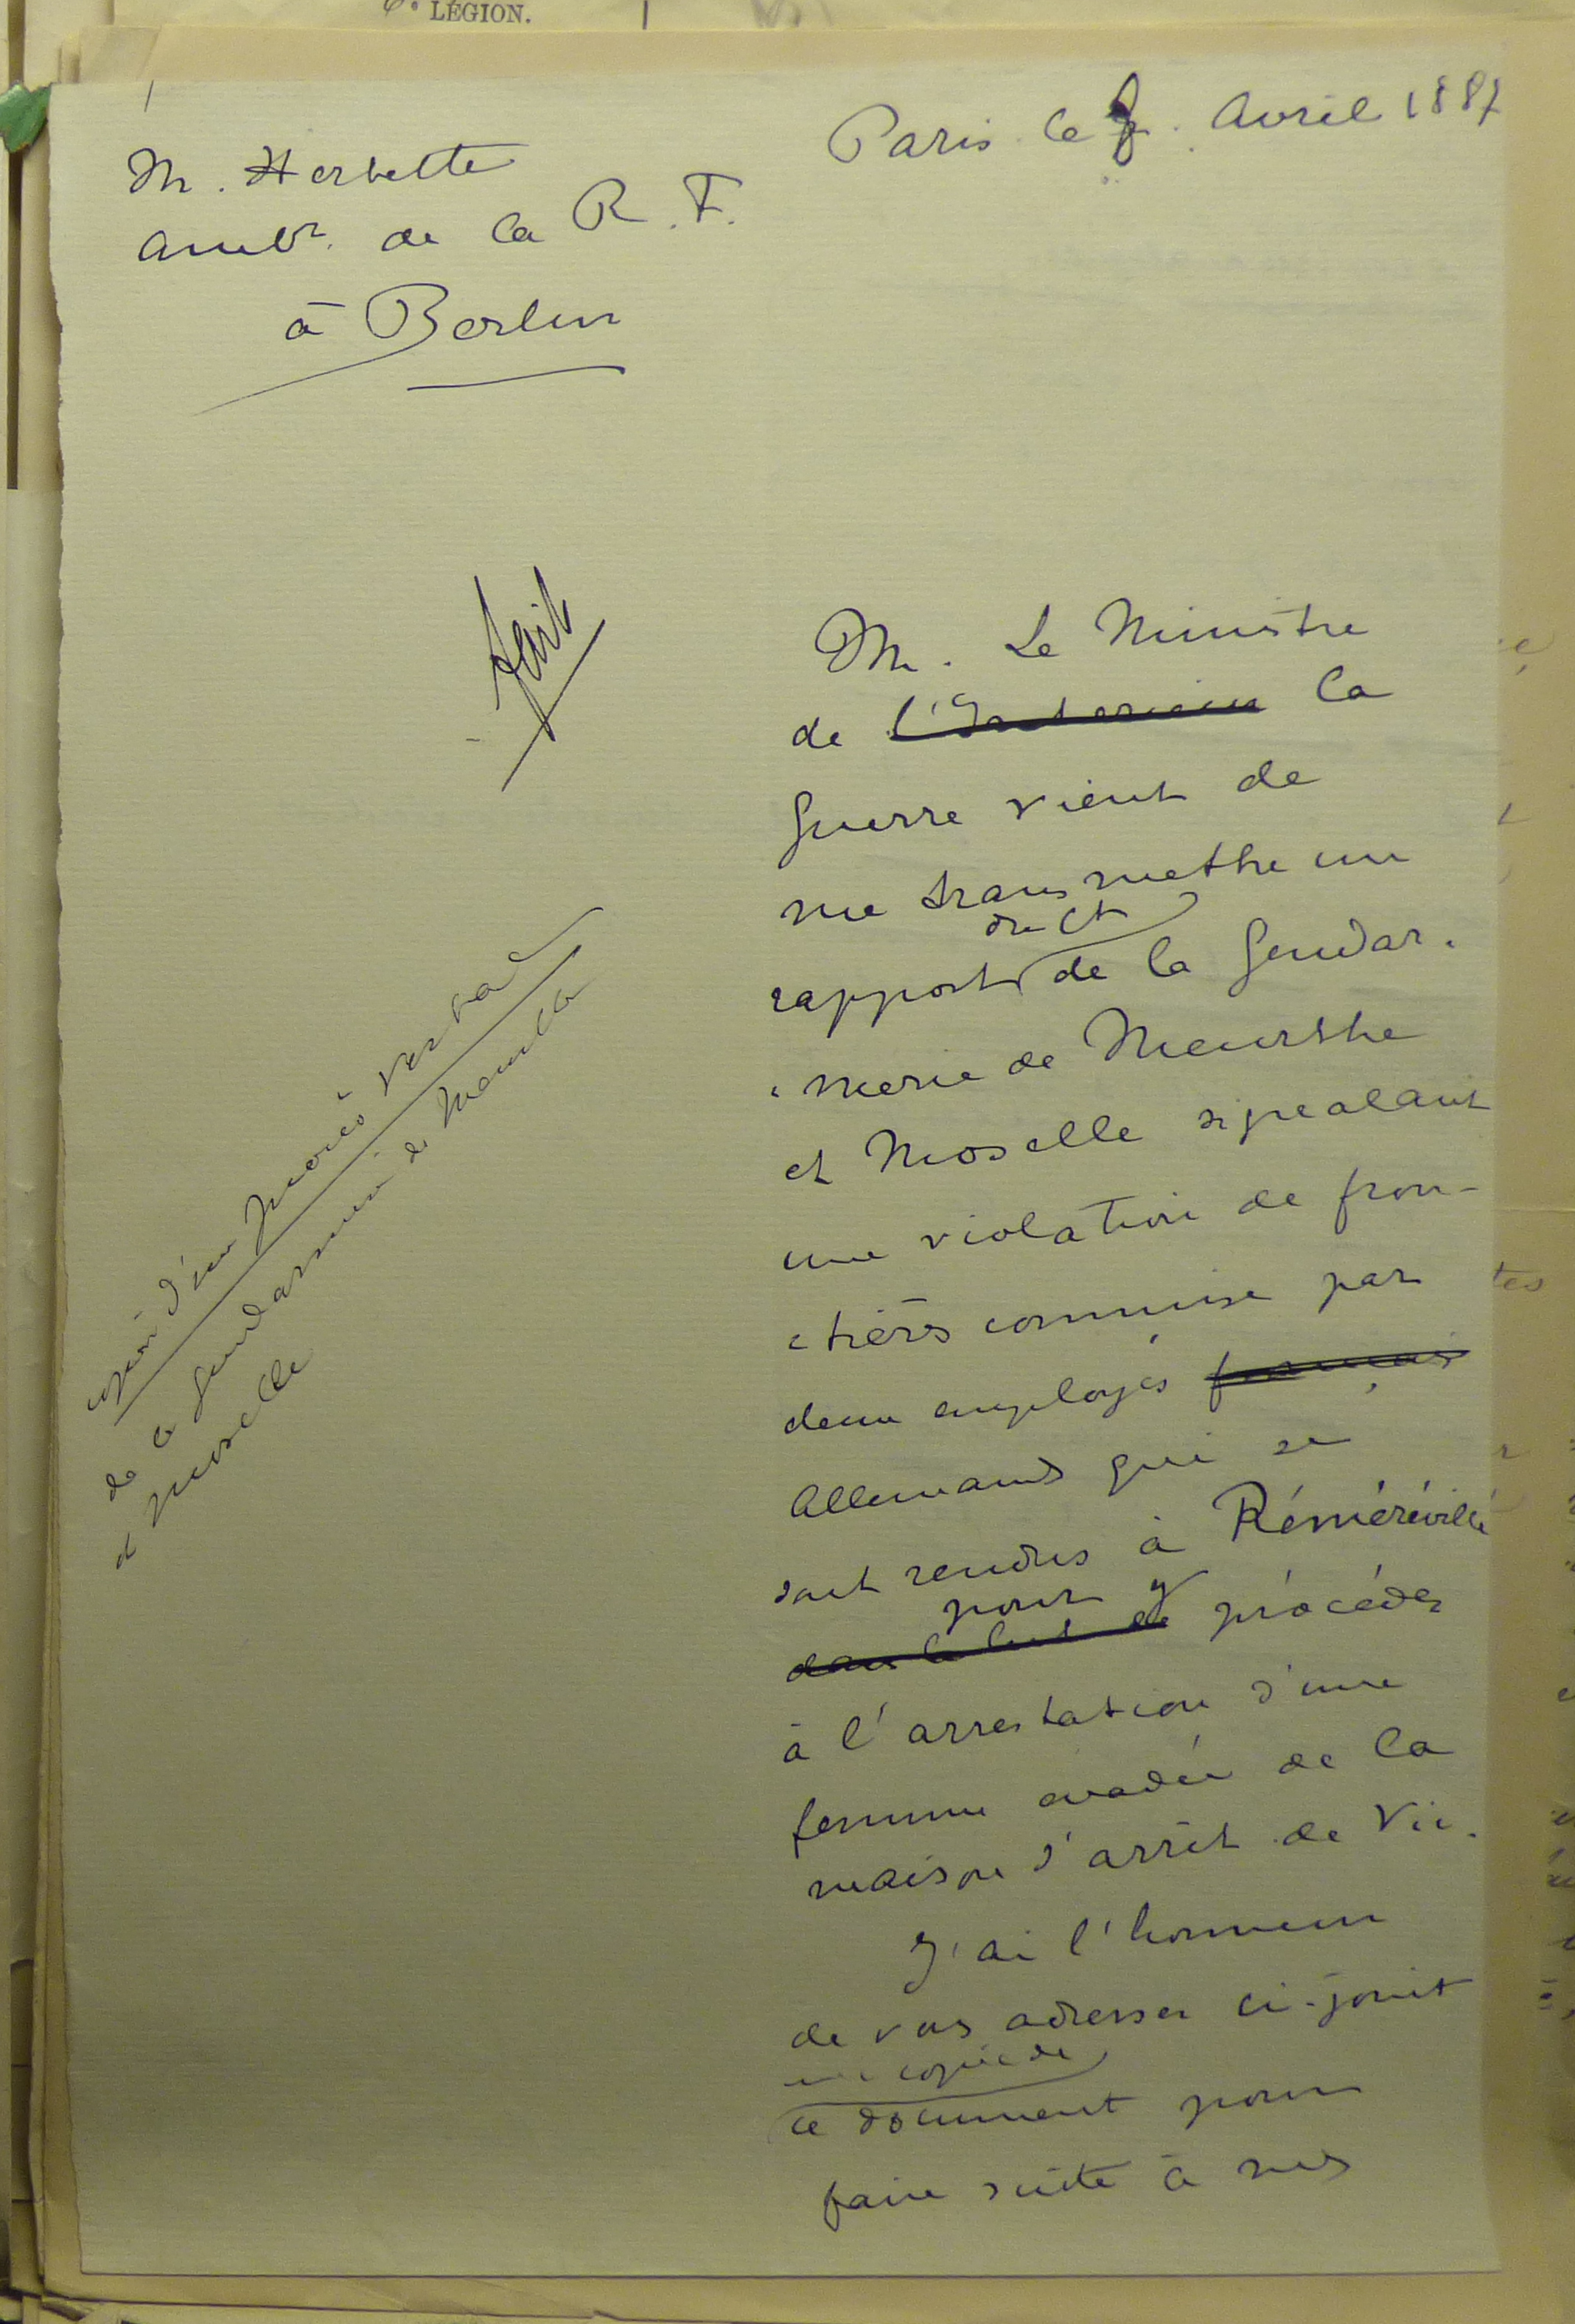 LÉGION.
Paris le 8. Avril 1887
M. Herbette
Ambr. de la R. F.
à Berlin
fait
M. Le Ministre
de l'Intérieur la
Guerre vient de
me transmettre un
rapport de la Gendar-
merie de Meurthe
et Moselle signalant
une violation de fron-
tière commise par
deux employés français
allemands qui se
sont rendus à Réméréville
pour y
dans le but de procéder
à l'arrestation d'une
femme évadée de la
maison d'arrêt de Vic.
J'ai l'honneur
de vous adresser ci-joint
une copie de
ce document pour
faire suite à mes
copie d'un procès verbal
de la gendarmerie de Meurthe
et Moselle